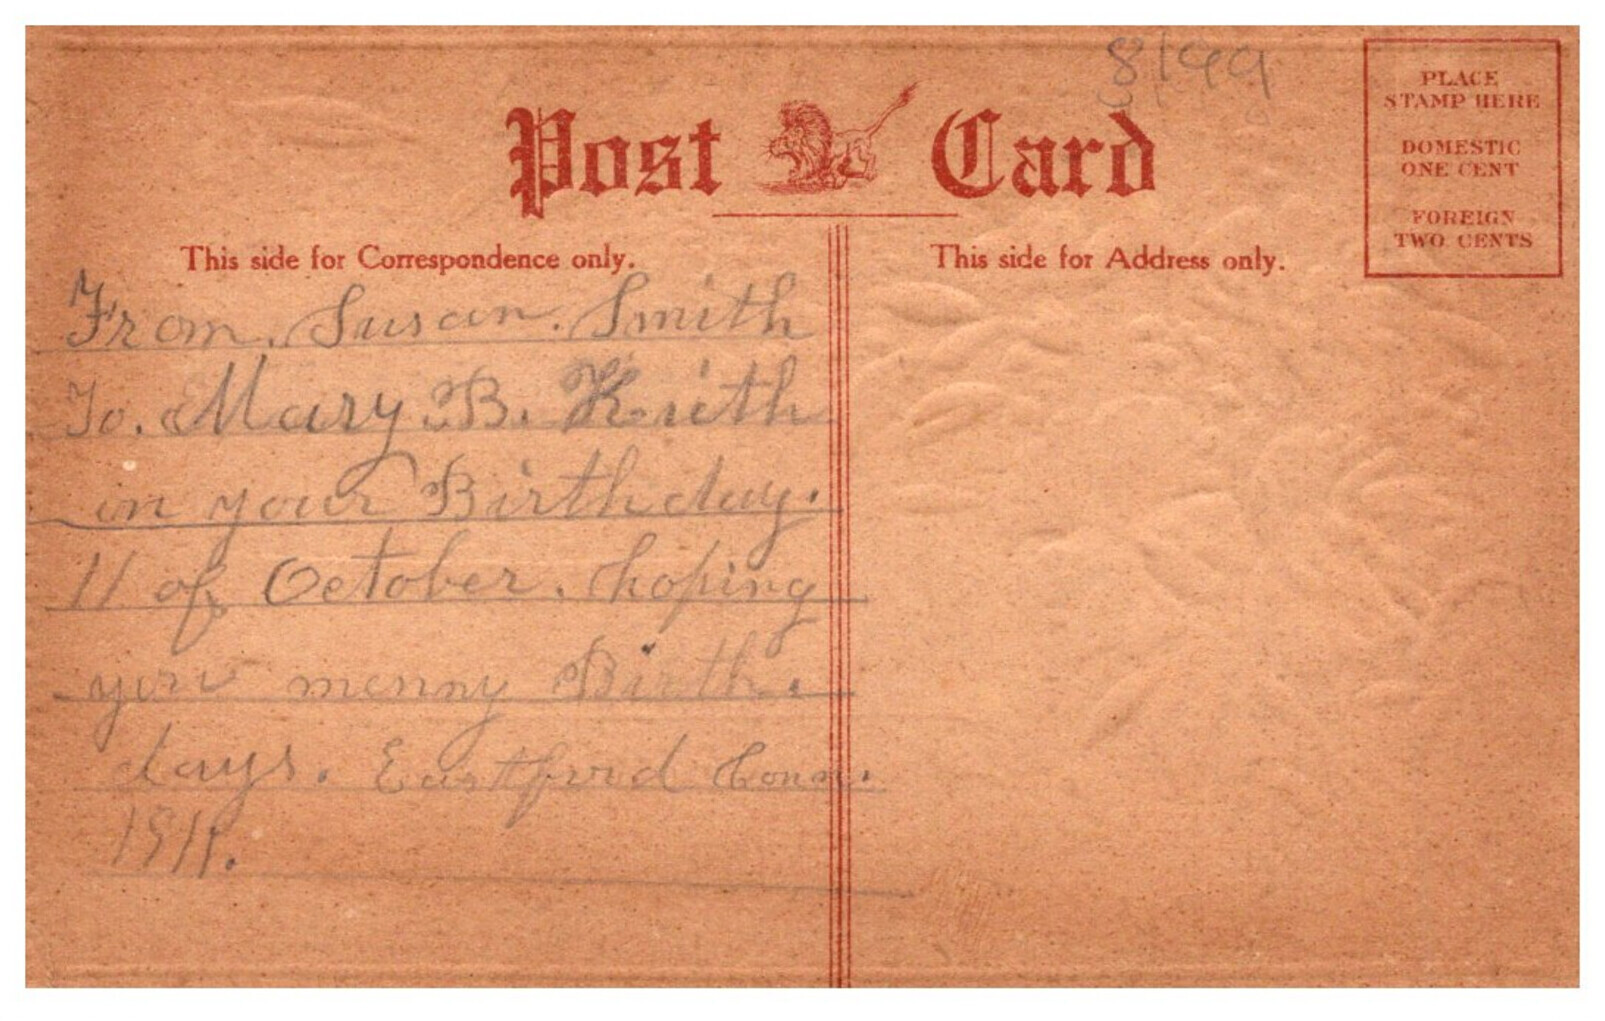 8/99
Post Card
PLACE
STAMP HERE
DOMESTIC
ONE CENT
FOREIGN
TWO CENTS
This side for Correspondence only.
This side for Address only.
From. Susan. Smith
To. Mary. B. Keith
on your Birthday.
11 of October. hoping
you menny Birth.
days. Eastford Conn.
1911.